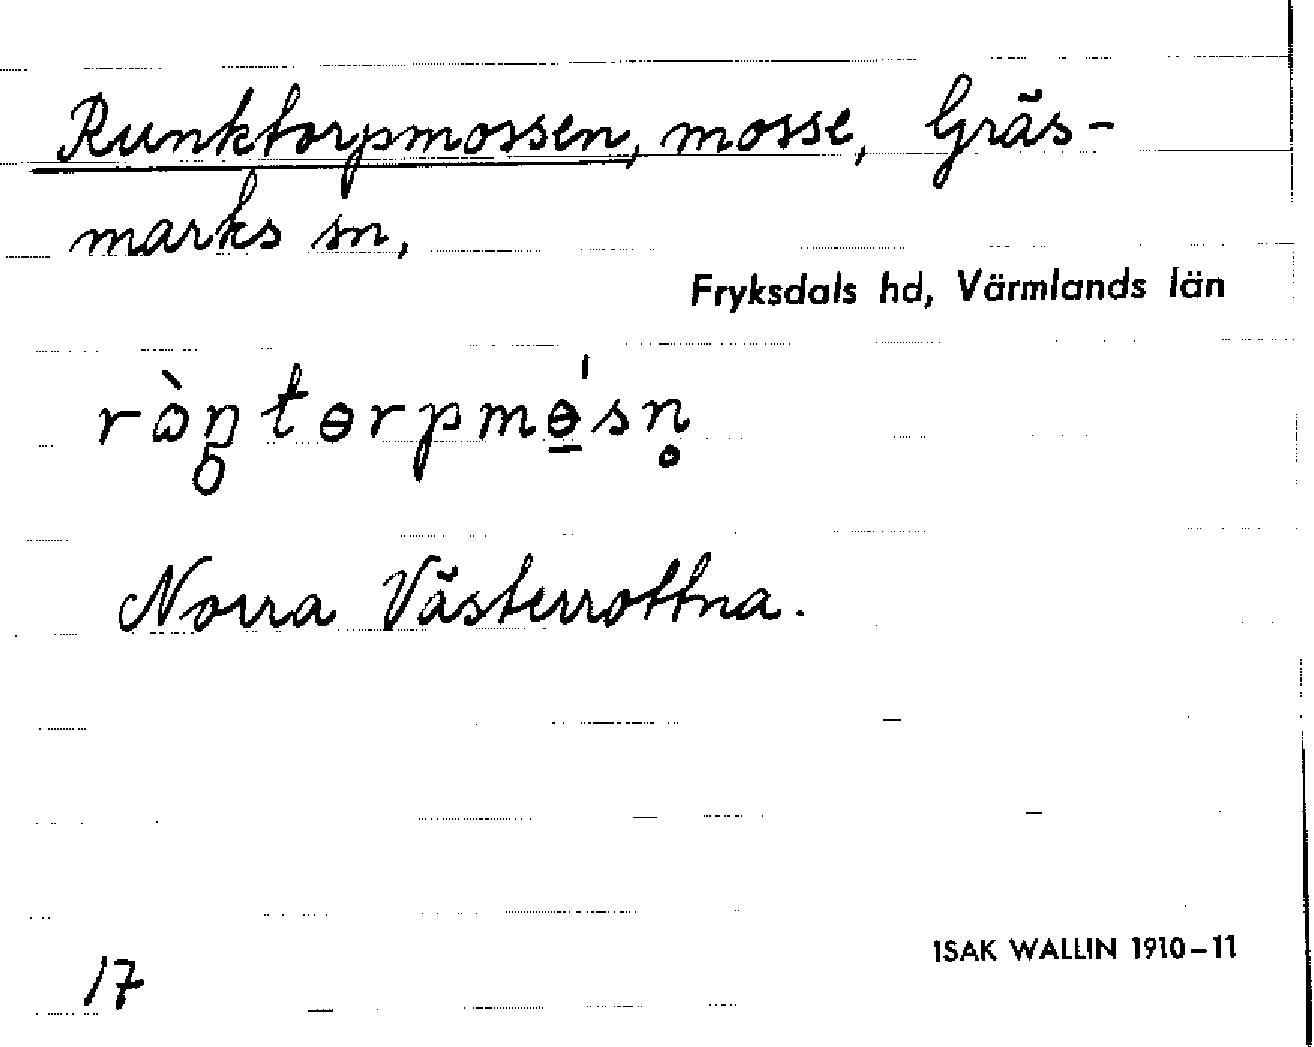 Runktorpmossen, mosse, Gräs-
marks sn,
Fryksdals hd, Värmlands län
ròŋtɵrpmɵ̲́sn̥
Norra Västerrottna.
17
ISAK WALLIN 1910-11